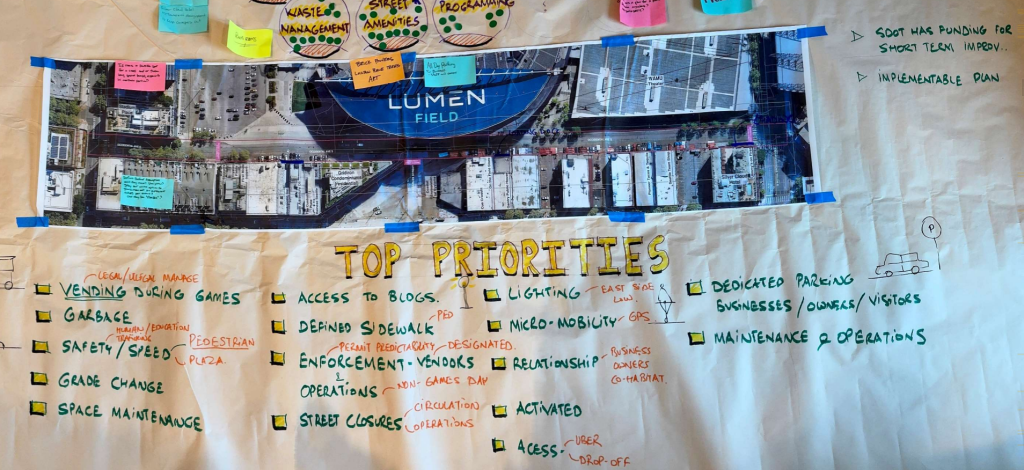 WASTE
MANAGEMENT
STREET
AMENITIES
PROGRAMMING
▷ SDOT HAS FUNDING FOR
SHORT TERM IMPROV..
▷ IMPLEMENTABLE PLAN
LUMEN
FIELD
TOP PRIORITIES
LEGAL/ILLEGAL MANAGE
VENDING DURING GAMES
GARBAGE
HUMAN/EDUCATION
TRAINING
SAFETY/SPEED
PEDESTRIAN
PLAZA.
GRADE CHANGE
SPACE MAINTENANCE
ACCESS TO BLDGS.
DEFINED SIDEWALK
PED
PERMIT PREDICTABILITY
DESIGNATED.
ENFORCEMENT - VENDORS
&
OPERATIONS
NON-GAMES DAY
STREET CLOSURES
CIRCULATION
OPERATIONS
LIGHTING
EAST SIDE
LOW.
MICRO-MOBILITY
GPS.
RELATIONSHIP
BUSINESS
OWNERS
CO-HABITAT.
ACTIVATED
ACESS -
UBER
DROP-OFF
P
DEDICATED PARKING
BUSINESSES/OWNERS/VISITORS
MAINTENANCE & OPERATIONS